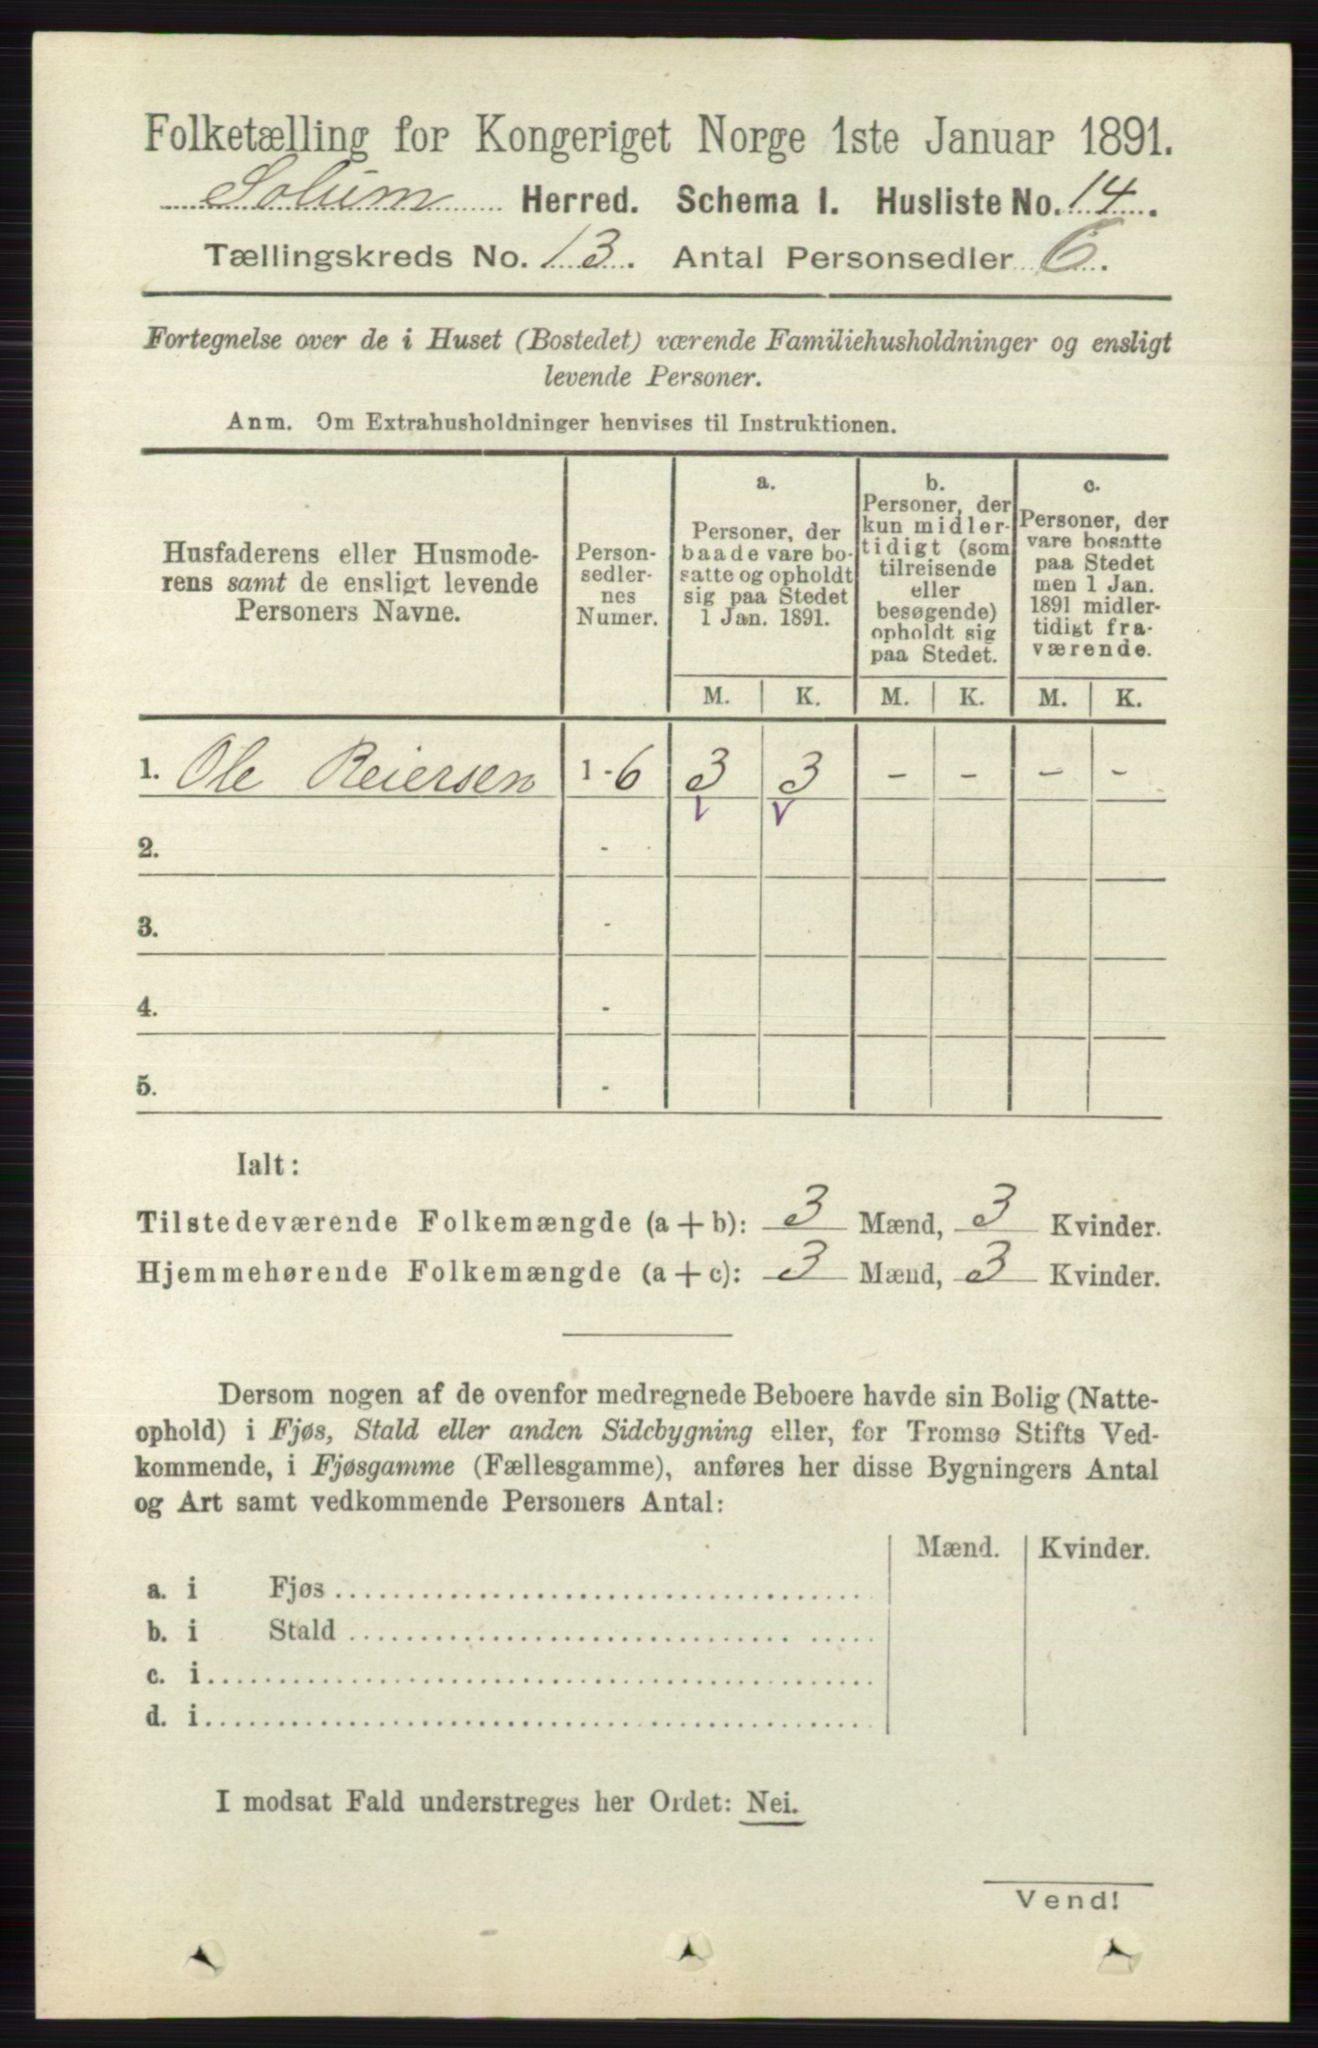 Folketælling for Kongeriget Norge 1ste Januar 1891.
Solum Herred. Schema I. Husliste No. 14.
Tællingskreds No. 13. Antal Personsedler 6.
Fortegnelse over de i Huset (Bostedet) værende Familiehusholdninger og ensligt
levende Personer.
Anm. Om Extrahusholdninger henvises til Instruktionen.
Husfaderens eller Husmode-
rens samt de ensligt levende
Personers Navne.
Person-
sedler-
nes
Numer.
a.
Personer, der
baade vare bo-
satte og opholdt
sig paa Stedet
1 Jan. 1891.
b.
Personer, der
kun midler-
tidigt (som
tilreisende
eller
besøgende)
opholdt sig
paa Stedet.
c.
Personer, der
vare bosatte
paa Stedet
men 1 Jan.
1891 midler-
tidigt fra-
værende.
M. K. M. K. M. K.
1. Ole Reiersen 1-6 3 3 - - - -
2. -
3. -
4. -
5. -
Ialt:
Tilstedeværende Folkemængde (a + b): 3 Mænd, 3 Kvinder.
Hjemmehørende Folkemængde (a + c): 3 Mænd, 3 Kvinder.
Dersom nogen af de ovenfor medregnede Beboere havde sin Bolig (Natte-
ophold) i Fjøs, Stald eller anden Sidebygning eller, for Tromsø Stifts Ved-
kommende, i Fjøsgamme (Fællesgamme), anføres her disse Bygningers Antal
og Art samt vedkommende Personers Antal:
Mænd. Kvinder.
a. i Fjøs
b. i Stald
c. i
d. i
I modsat Fald understreges her Ordet: Nei.
Vend!